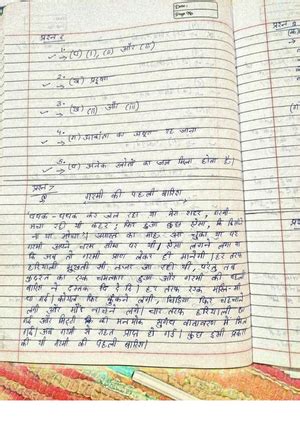 Date:
Page No.
प्रश्न 6
1. → (घ) (I), (II) और (III)
2. → (ख)
3. → (ख) (II) और (III)
4. → (ग) का अधूरा रह जाना
5. → (घ) अनेक स्रोतों का जल मिला होता है।
प्रश्न 7
गरमी की पहली बारिश
धधक - धधक कर जल रहा था मेरा शहर, गरमी
मचा रही थी कहर; फिर हुआ कुछ ऐसा, कि किसी
ने था सोचा। अगस्त का माह आ चुका था पर
गरमी अपने चरम सीमा पर थी। ऐसा लगने लगा था
कि अब तो गरमी प्राण लेकर ही मानेगी। हर तरफ
हरियाली सूखती सी नजर आ रही थी, परंतु तब
कुदरत का एक चमत्कार हुआ और गरमी की पहली
बारिश ने दस्तक दे दी। हर तरफ एक
छा गई। कोयल फिर कूकने लगी, चिड़िया फिर चहचाने
लगी और मोर नाचने लगे। चारों तरफ हरियाली छा
गई और मिट्टी की मनमोहक सुगंध वातावरण में मिल
गई। अब गरमी से राहत प्राप्त हो गई। कुछ इसी प्रकार
की थी गरमी की पहली बारिश।